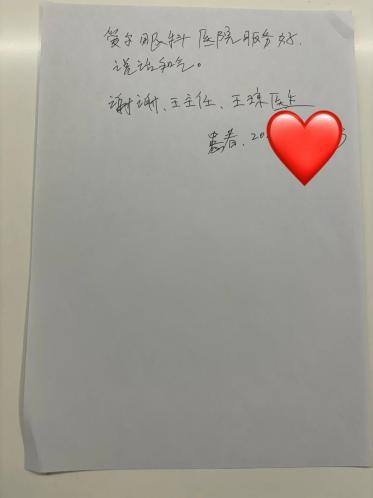 爱尔眼科医院服务好,
说话和气。
谢谢、王主任、王琼医生
患者、20